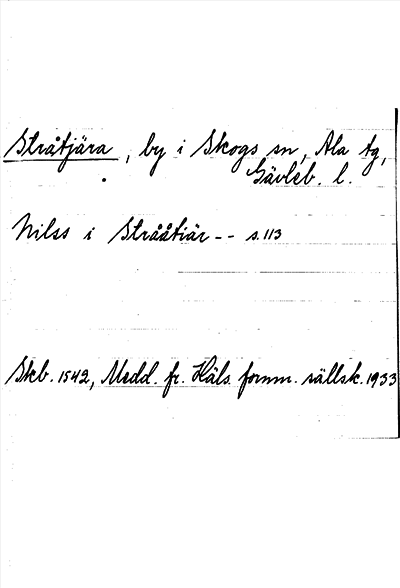 Stråtjära, by i Skogs sn, Ala tg,
Gävleb. l.
Nilss i Strååtiär -- s. 113
Skb. 1542, Medd. fr. Häls. fornm. sällsk. 1933